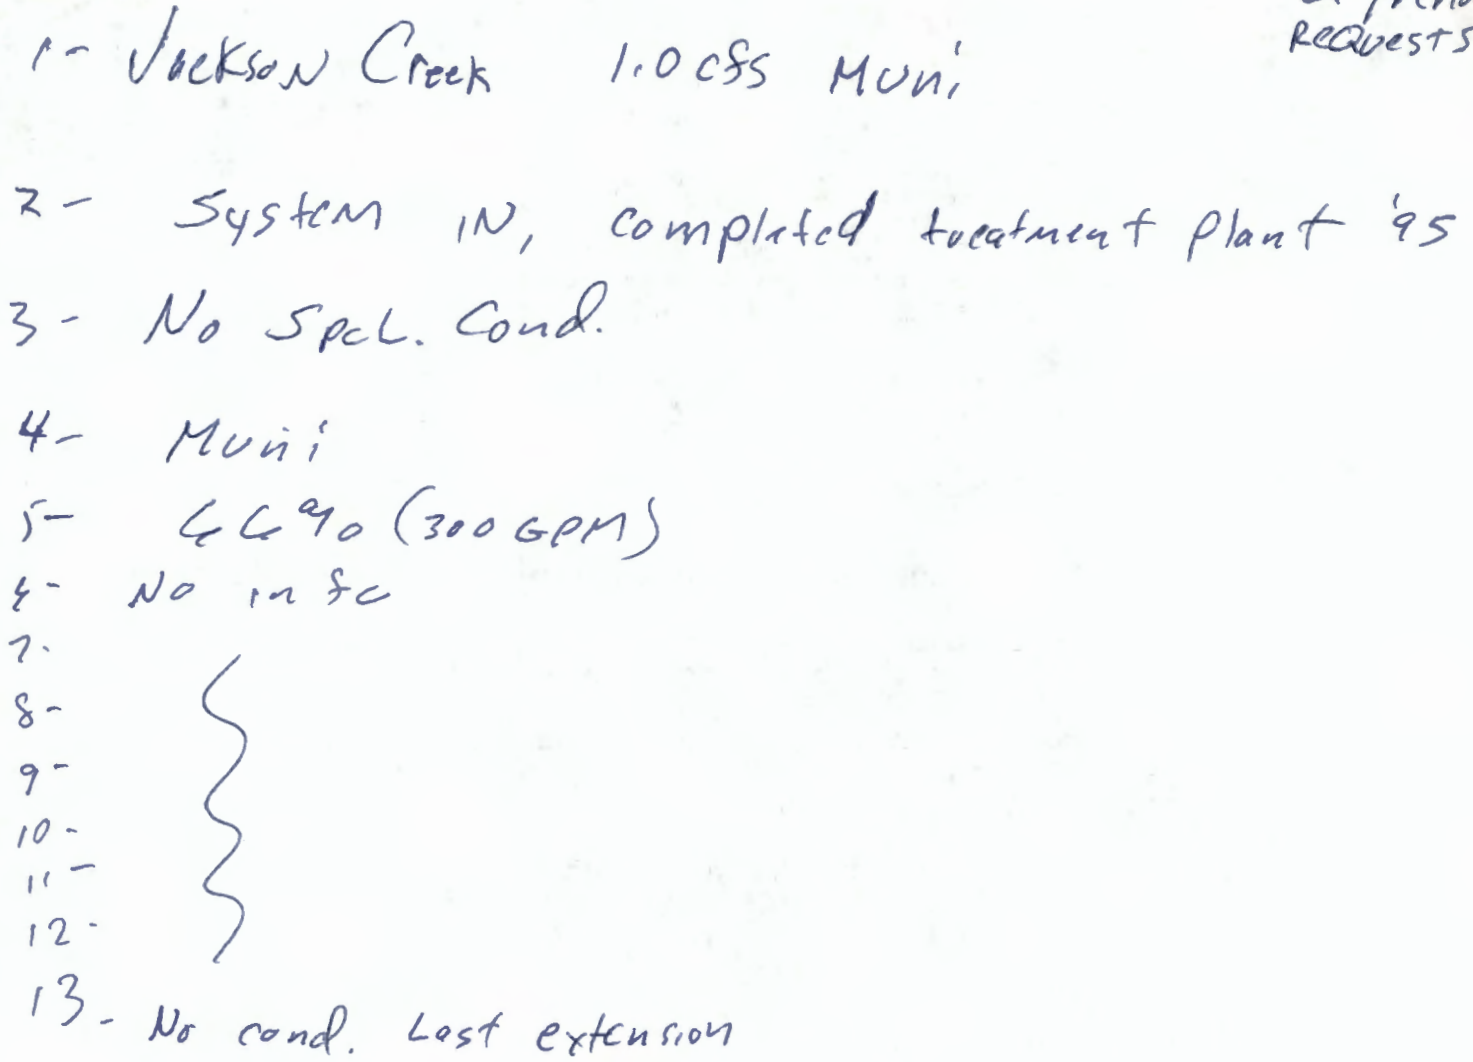 Requests
1- Jackson Creek 1.0 cfs Muni
2- System in, completed treatment plant '95
3- No Spcl. Cond.
4- Muni
5- 66% (300 GPM)
6- No info
7-
8-
9-
10-
11-
12-
13- No cond. Last extension